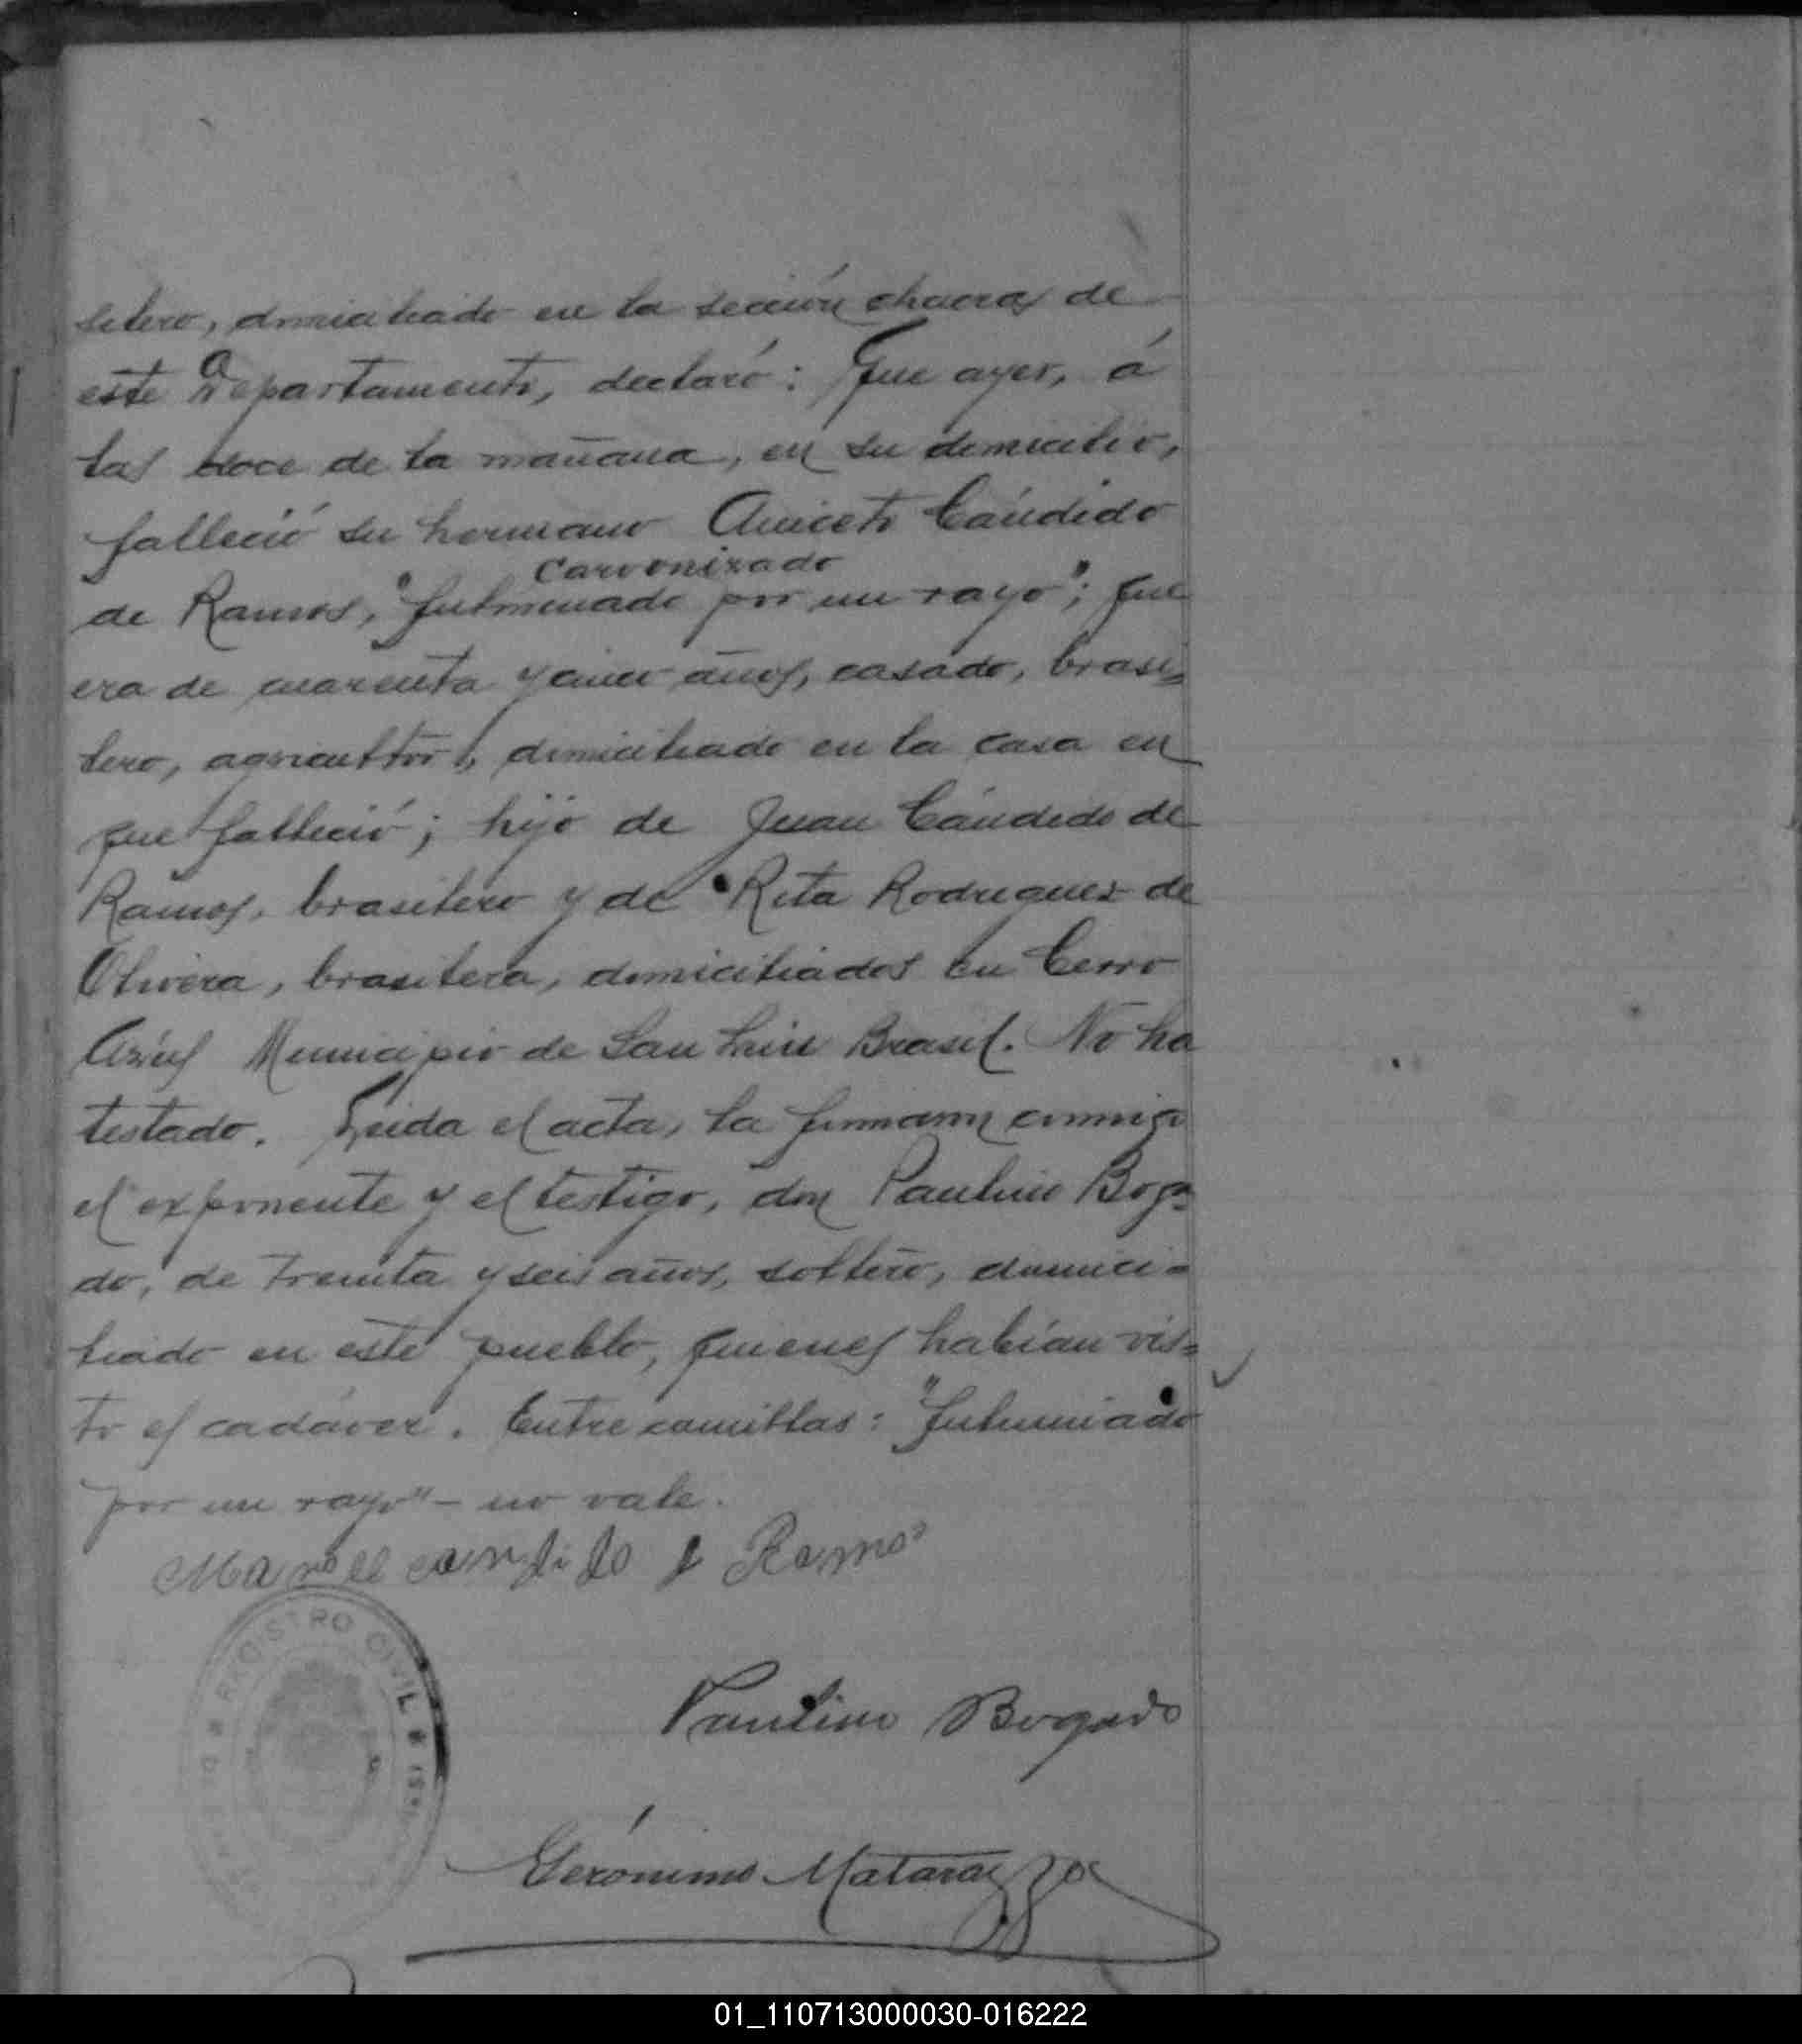 silero, domiciliado en la sección chacras de
este Departamento, declaró: Que ayer, á
las doce de la mañana, en su domicilio,
falleció su hermano Aniceto Cándido
carvonizado
de Ramos, "fulminado por un rayo"; que
era de cuarenta y cinco años, casado, brasi-
lero, agricultor, domiciliado en la casa en
que falleció; hijo de Juan Cándido de
Ramos, brasilero y de Rita Rodriguez de
Olivera, brasilera, domiciliados en Cerro
Azúl Municipio de San Luis Brasil. No ha
testado. Leida el acta, la firmaron conmigo
el exponente y el testigo, don Paulino Boga-
do, de treinta y seis años, soltero, domici-
liado en este pueblo, quienes habían vis-
to el cadáver. Entre comillas: "fulminado
por un rayo" - no vale.
Manoel candido d Ramos
REGISTRO CIVIL
Paulino Bogado
Gerónimo Matarazzo
01_110713000030-016222